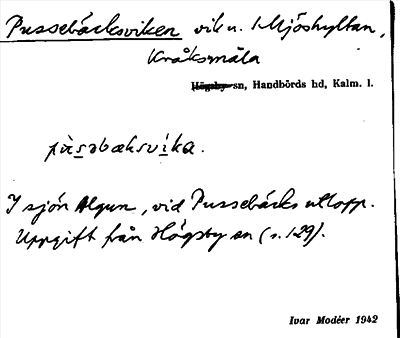 Pussebäcksviken vik u. Mjöshyltan,
Kråksmåla
Högsby sn, Handbörds hd, Kalm. l.
pùsəbæksvika.
I sjön Algun, vid Pussebäcks utlopp.
Uppgift från Högsby sn (s. 129).
Ivar Modéer 1942